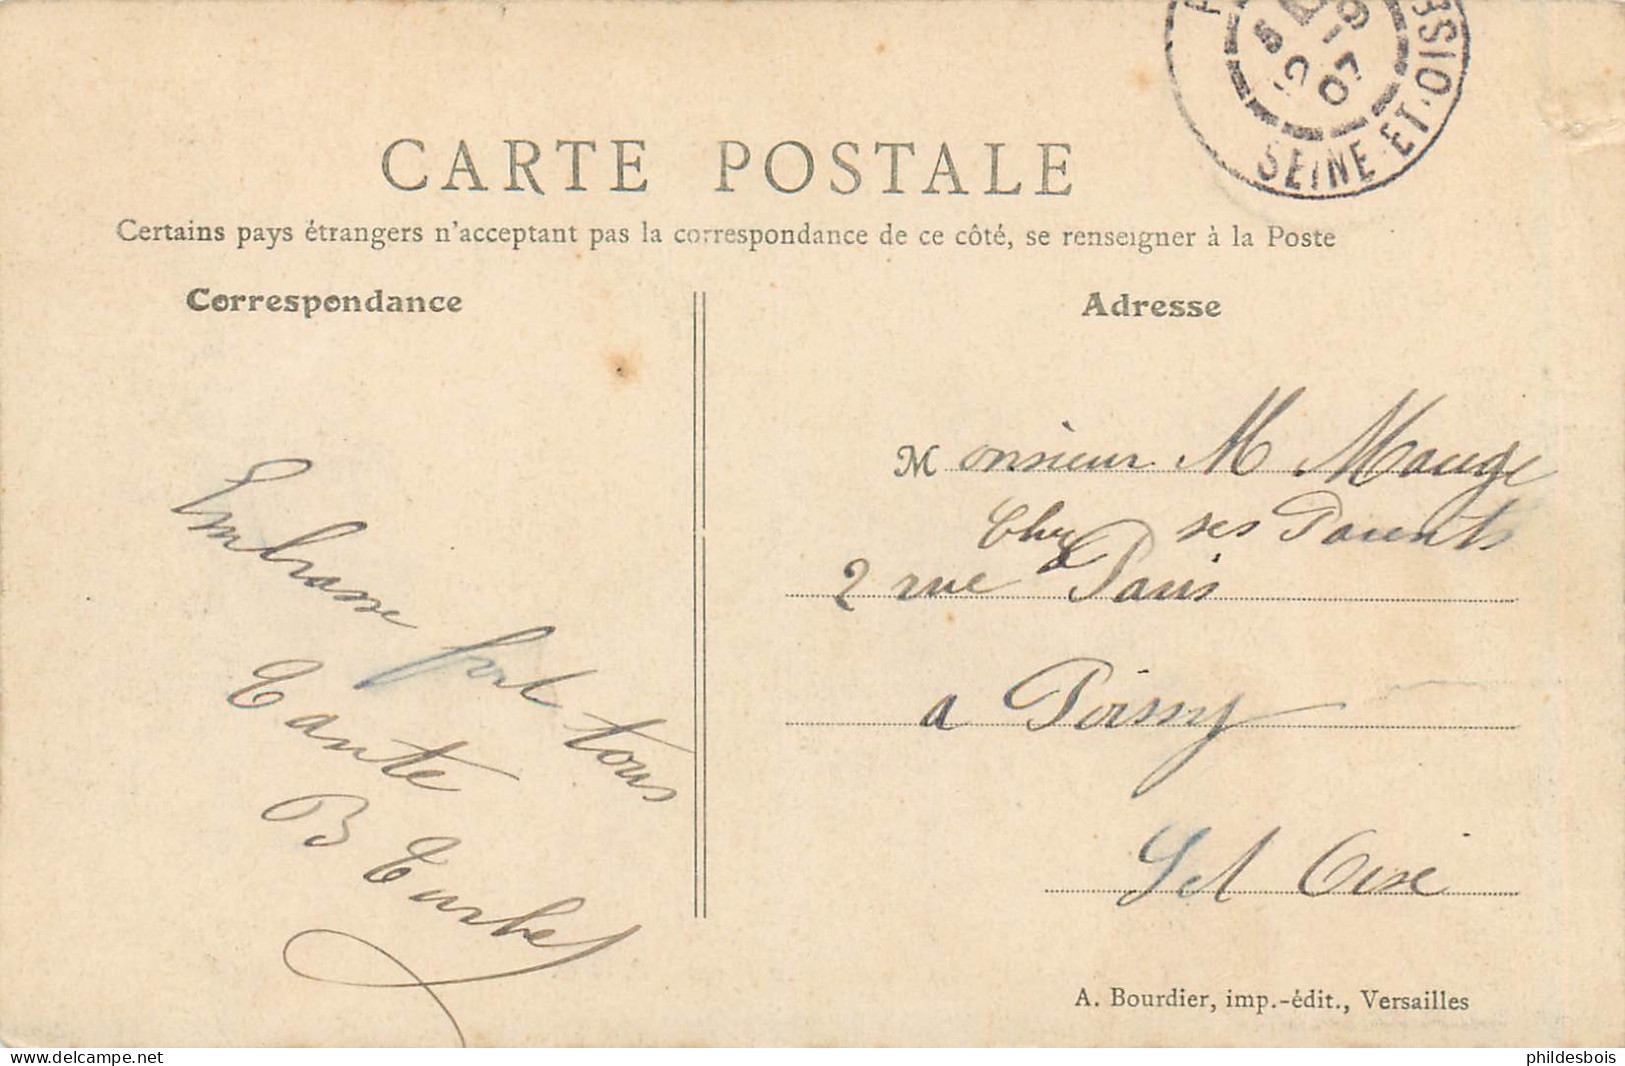 SEINE-ET-OISE
CARTE POSTALE
Certains pays étrangers n'acceptant pas la correspondance de ce côté, se renseigner à la Poste
Correspondance
Adresse
Embrasse fort tous
Tante
B
Monsieur M Mauge
Chez ses Parents
2 rue Paris
a Poissy
S et Oise
A. Bourdier, imp.-édit., Versailles
phildesbois